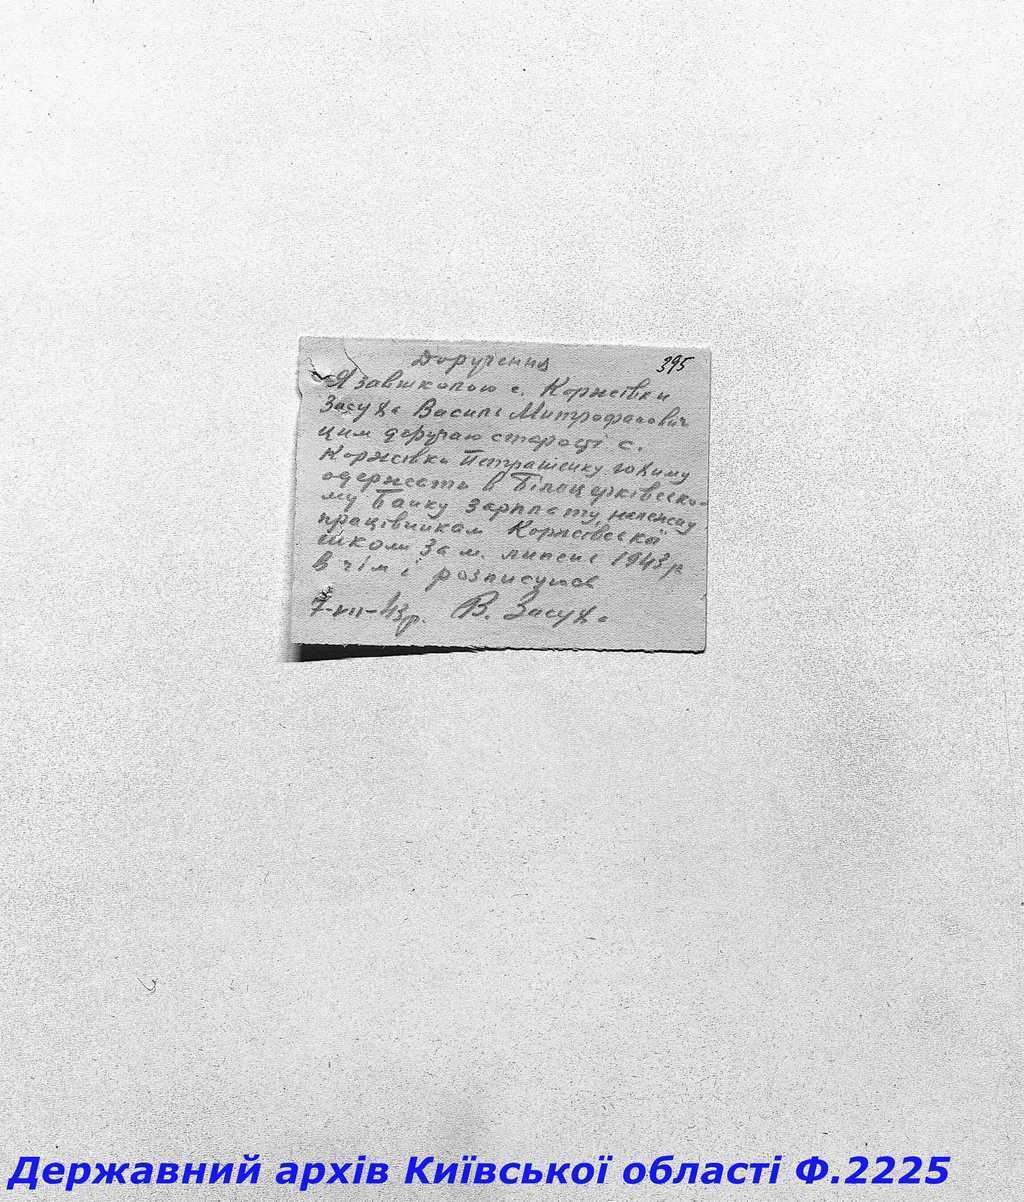 395
Доручення
Я завшколою с. Коржівки
Засуха Василь Митрофанович
цим доручаю старості с.
Коржівки Петрашенку Юхиму
одержати в Білоцерківсько-
му Банку зарплату, належну
працівникам Коржівської
школи за м. липень 1943 р
в чім і розписуюся
7-VII-43р. В. Засуха
Державний архів Київської області Ф.2225